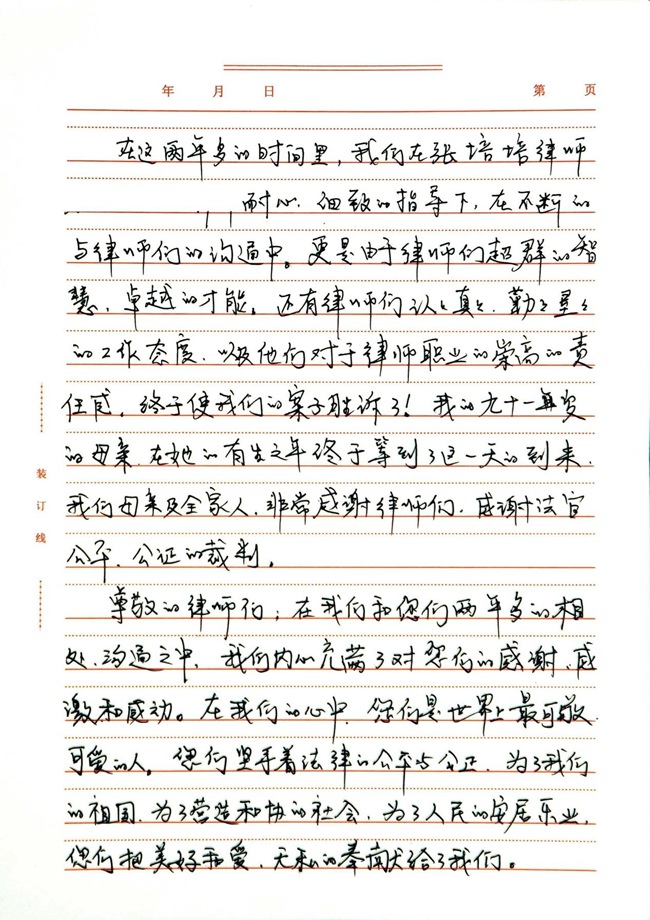 年 月 日 第 页
在这两年多的时间里，我们在张培培律师
耐心、细致的指导下，在不断的
与律师们的沟通中。更是由于律师们超群的智
慧、卓越的才能。还有律师们认认真真、勤勤垦垦
的工作态度、以及他们对于律师职业的崇高的责
任感，终于使我们的案子胜诉了！我的九十一岁
的母亲，在她的有生之年终于等到了这一天的到来。
我们母亲及全家人，非常感谢律师们，感谢法官
公平、公证的裁判。
尊敬的律师们；在我们和您们两年多的相
处、沟通之中，我们内心充满了对您们的感谢、感
激和感动。在我们的心中，您们是世界上最可敬、
可爱的人。您们坚守着法律的公平与公正，为了我们
的祖国，为了营造和协的社会，为了人民的安居乐业，
您们把美好和爱，无私的奉献给了我们。
装订线